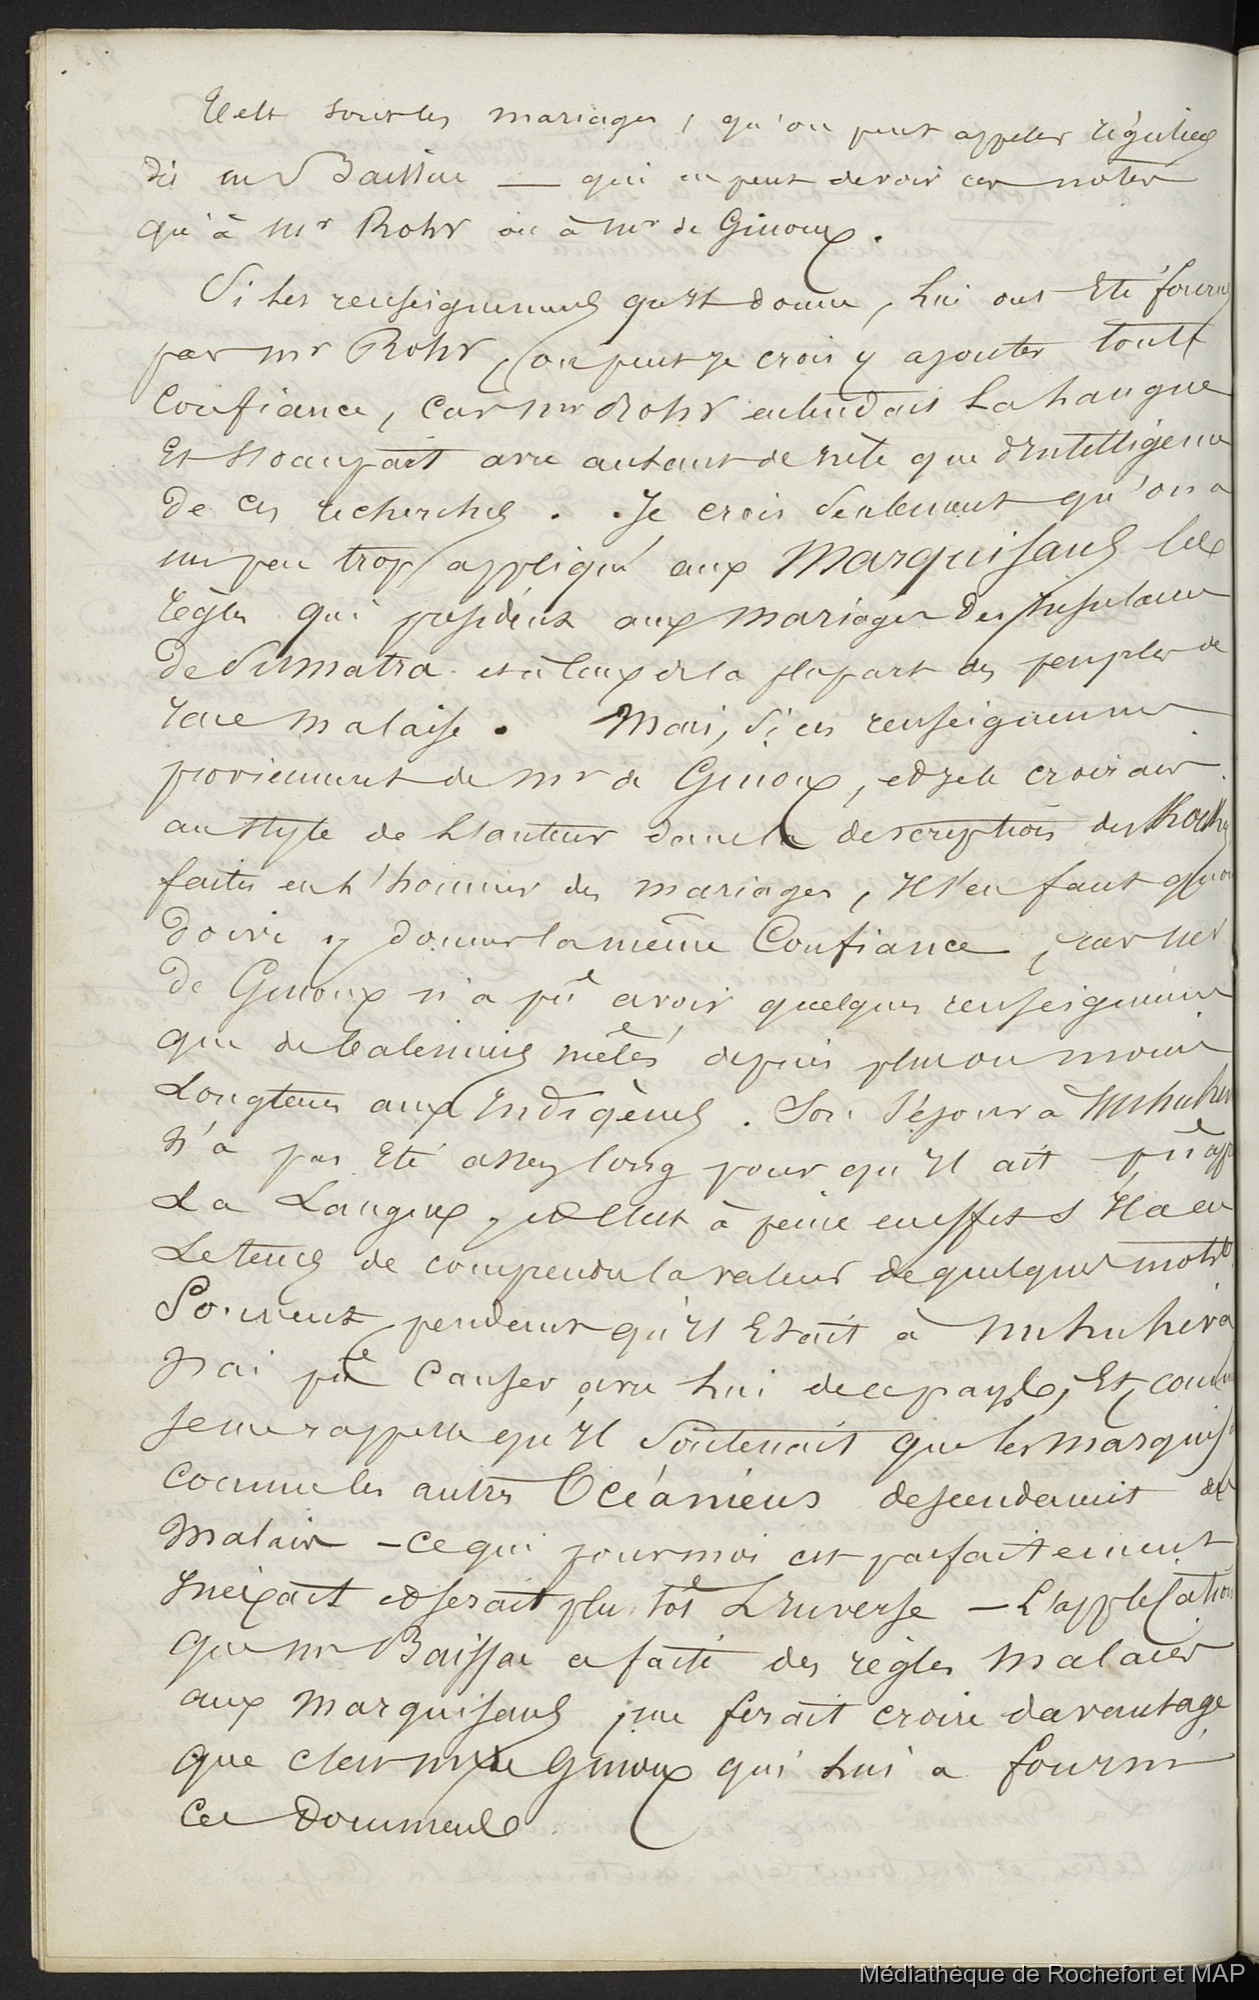 Tels sont les mariages, qu'on peut appeler réguliers
dit mr Baissac — qui ne peut devoir ces notes
qu'à Mr Rohr ou à Mr de Ginoux.
Si les renseignements qu'il donne, lui ont été fournis
par mr Rohr, on peut je crois y ajouter toute
Confiance, car mr Rohr entendait La Langue
Et s'occupait avec autant de zèle que d'Intelligence
de ces recherches. Je crois seulement qu'on a
un peu trop appliqué aux Marquisans les
règles qui président aux mariages des Insulaires
de Sumatra et à ceux de la plupart des peuples de
race malaise. Mais, si ces renseignements
proviennent de mr de Ginoux, et je le croirais
au style de L'auteur dans la description des Koika
faites en L'honneur des mariages, Il s'en faut qu'on
doive y donner la même Confiance, car mr
de Ginoux n'a pû avoir quelques renseignements
que de baleiniers mêlés depuis plus ou moins
Longtems aux Indigènes. Son séjour à Nukuhiva
n'a pas Eté assez long pour qu'Il ait pû app
La Langue, et c'est à peine en effet s'Il a eu
Le tems de comprendre la valeur de quelques mots.
Souvent, pendant qu'Il Etait à Nukuhiva
J'ai pû Causer avec Lui de ce pays, Et, comme
Je me rappelle qu'Il Soutenait que les marquis
comme les autres Océaniens descendaient des
Malais — ce qui pour moi est parfaitement
Inexact et serait plutôt L'Inverse — L'application
que mr Baissac a faite des règles Malaises
aux Marquisans, me ferait croire davantage
que c'est mr de Ginoux qui Lui a fourni
ces Documents.
Médiathèque de Rochefort et MAP